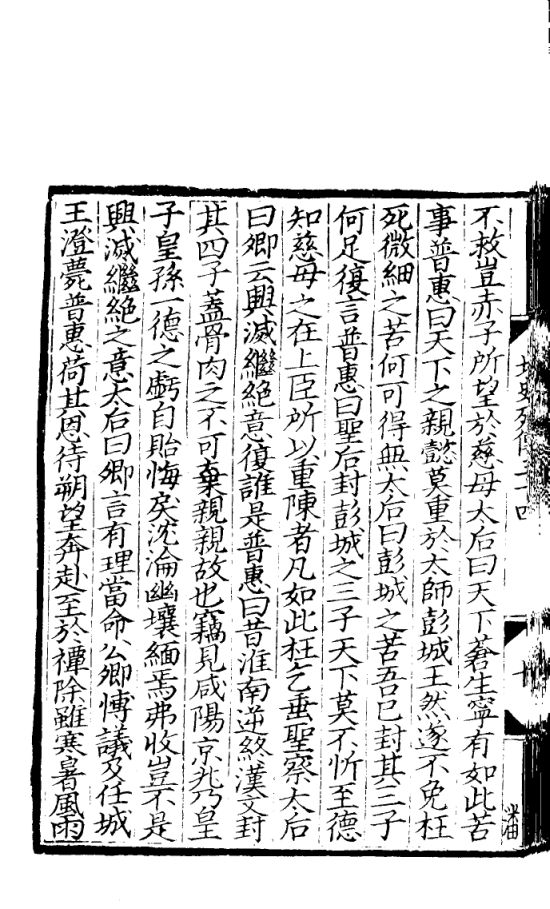 不救豈赤子所望於慈母太后曰天下蒼生寧有如此苦
事普惠曰天下之親懿莫重於太師彭城王然遂不免枉
死微細之苦何可得無太后曰彭城之苦吾已封其三子
何足復言普惠曰聖后封彭城之三子天下莫不忻至德
知慈母之在上臣所以重陳者凡如此枉乞垂聖察太后
曰卿云興滅繼絶意復誰是普惠曰昔淮南逆終漢文封
其四子蓋骨肉之不可棄親親故也竊見咸陽京兆乃皇
子皇孫一德之虧自貽悔戾沈淪幽壤緬焉弗收豈不是
興滅繼絶之意太后曰卿言有理當命公卿愽議及任城
王澄薨普惠荷其恩待朔望奔赴至於禫除雖寒暑風雨